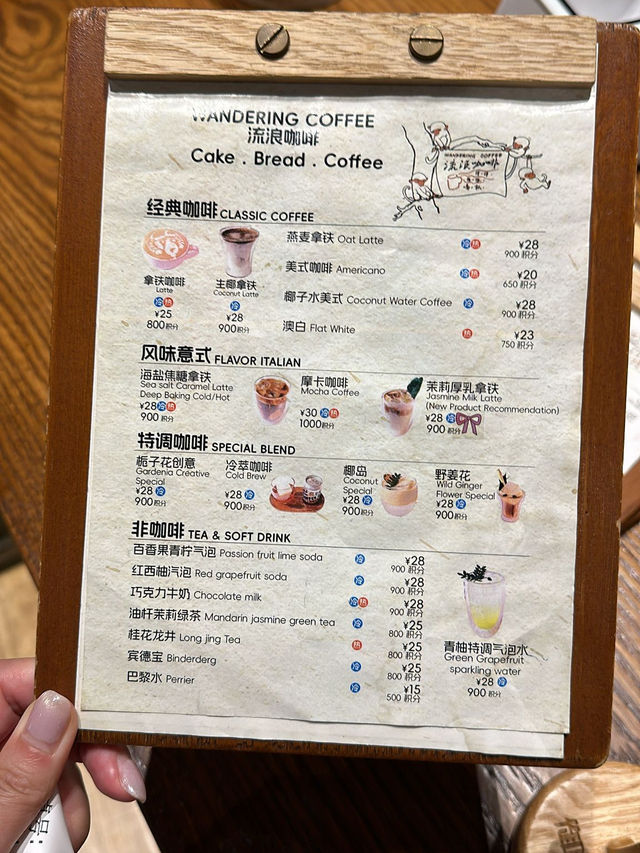 WANDERING COFFEE
流浪咖啡
Cake . Bread . Coffee
WANDERING COFFEE
流浪咖啡
经典咖啡 CLASSIC COFFEE
拿铁咖啡
Latte
冷 热
¥25
800积分
主椰拿铁
Coconut Latte
冷
¥28
900积分
燕麦拿铁 Oat Latte 冷 热 ¥28
900 积分
美式咖啡 Americano 冷 热 ¥20
650 积分
椰子水美式 Coconut Water Coffee 冷 ¥28
900 积分
澳白 Flat White 热 ¥23
750 积分
风味意式 FLAVOR ITALIAN
海盐焦糖拿铁
Sea salt Caramel Latte
Deep Baking Cold/Hot
¥28 冷 热
900 积分
摩卡咖啡
Mocha Coffee
¥30 冷 热
1000积分
茉莉厚乳拿铁
Jasmine Milk Latte
(New Product Recommendation)
¥28 冷
900 积分
特调咖啡 SPECIAL BLEND
栀子花创意
Gardenia Creative
Special
¥28 冷
900积分
冷萃咖啡
Cold Brew
¥28 冷
900积分
椰岛
Coconut
Special
¥28 冷
900积分
野姜花
Wild Ginger
Flower Special
¥28 冷
900积分
非咖啡 TEA & SOFT DRINK
百香果青柠气泡 Passion fruit lime soda 冷 ¥28
900 积分
红西柚汽泡 Red grapefruit soda 冷 ¥28
900 积分
巧克力牛奶 Chocolate milk 冷 热 ¥28
900 积分
油杆茉莉绿茶 Mandarin jasmine green tea 冷 ¥25
800 积分
桂花龙井 Long jing Tea 热 ¥25
800 积分
宾德宝 Binderderg 冷 ¥25
800 积分
巴黎水 Perrier 冷 ¥15
500 积分
青柚特调气泡水
Green Grapefruit
sparkling water
¥28 冷
900 积分